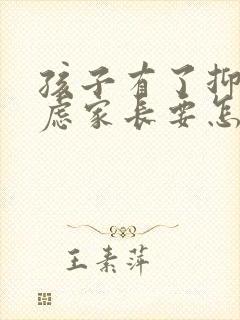 孩子有了抑
虑家长要怎
王素萍